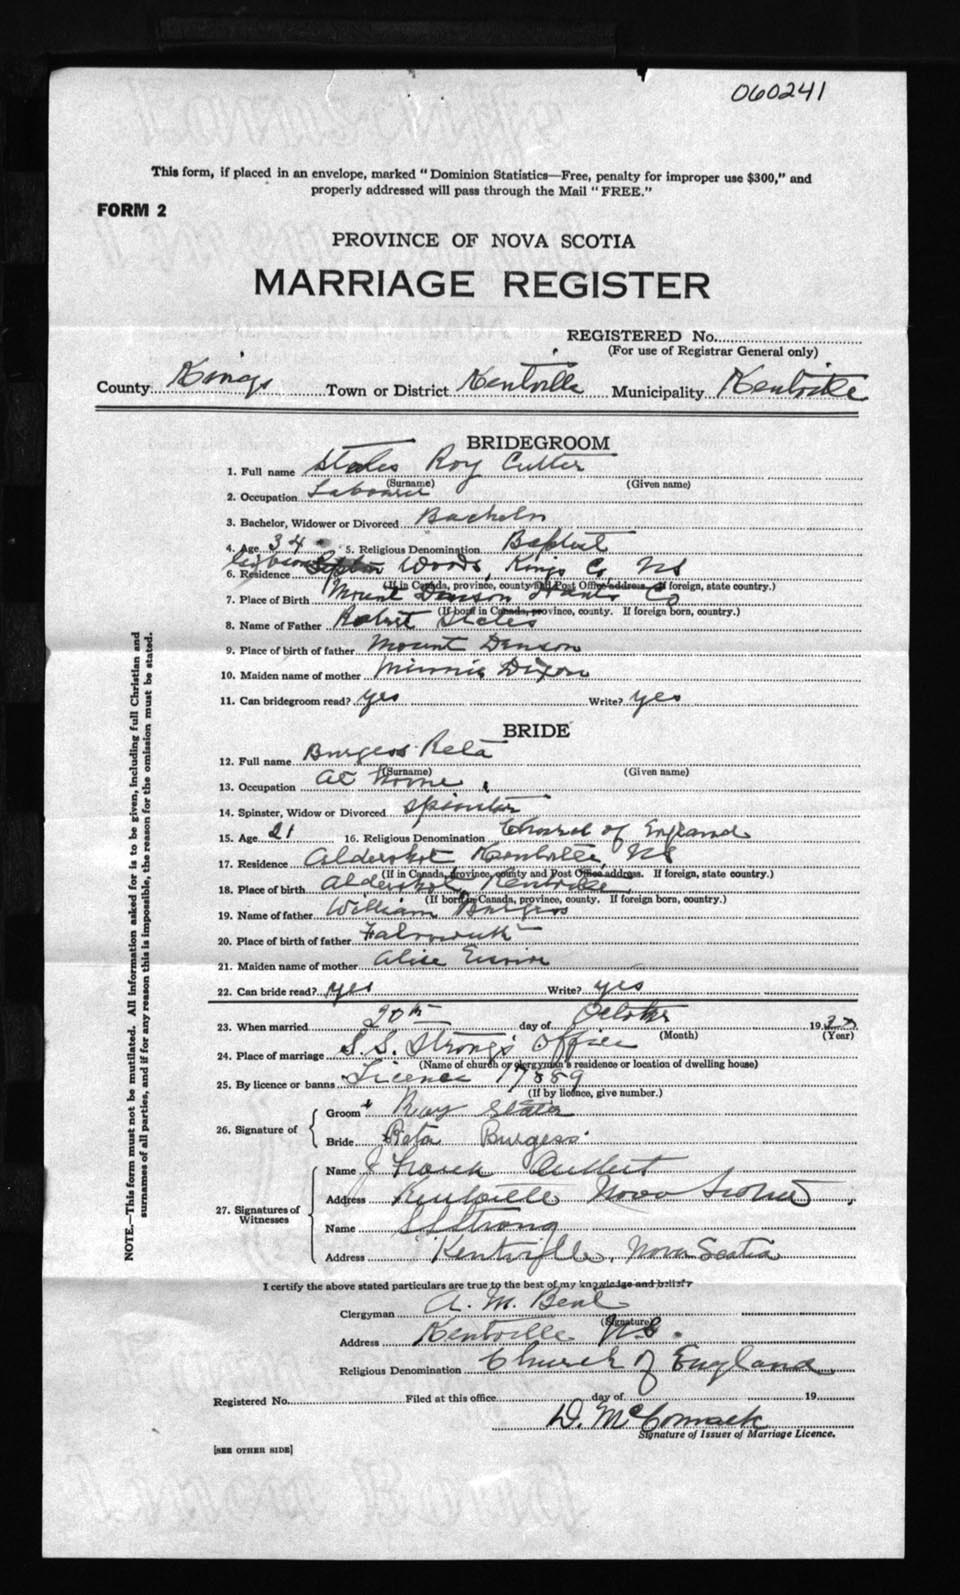 060241
This form, if placed in an envelope, marked "Dominion Statistics—Free, penalty for improper use $300," and
properly addressed will pass through the Mail "FREE."
FORM 2
PROVINCE OF NOVA SCOTIA
MARRIAGE REGISTER
REGISTERED No.
(For use of Registrar General only)
County Kings Town or District Kentville Municipality Kentville
BRIDEGROOM
1. Full name States Roy Cutler
(Surname) (Given name)
2. Occupation Labourer
3. Bachelor, Widower or Divorced Bachelor
4. Age 34 5. Religious Denomination Baptist
6. Residence Gibson Woods, Kings Co NS
(If in Canada, province, county and Post Office address. If foreign, state country.)
7. Place of Birth Mount Denson Hants Co
(If born in Canada, province, county. If foreign born, country.)
8. Name of Father Robert States
9. Place of birth of father Mount Denson
10. Maiden name of mother Minnie Dixon
11. Can bridegroom read? yes Write? yes
BRIDE
12. Full name Burgess Reta
(Surname) (Given name)
13. Occupation at home
14. Spinster, Widow or Divorced Spinster
15. Age 21 16. Religious Denomination Church of England
17. Residence Aldershot Kentville, NS
(If in Canada, province, county and Post Office address. If foreign, state country.)
18. Place of birth Aldershot, Kentville
(If born in Canada, province, county. If foreign born, country.)
19. Name of father William Burgess
20. Place of birth of father Falmouth
21. Maiden name of mother Alise
22. Can bride read? yes Write? yes
23. When married 20th day of October 1930
(Month) (Year)
24. Place of marriage S.S. Strong's Office
(Name of church or clergyman's residence or location of dwelling house)
25. By licence or banns Licence 17889
(If by licence, give number.)
26. Signature of
Groom + Roy States
Bride Reta Burgess
27. Signatures of Witnesses
Name
Address Kentville Nova Scotia
Name S S Strong
Address Kentville, Nova Scotia
I certify the above stated particulars are true to the best of my knowledge and belief.
Clergyman A. M. Bent
(Signature)
Address Kentville N.S.
Religious Denomination Church of England
Registered No. Filed at this office day of 19
D. McCormack
Signature of Issuer of Marriage Licence.
[SEE OTHER SIDE]
NOTE.—This form must not be mutilated. All information asked for is to be given, including full Christian and
surnames of all parties, and if for any reason this is impossible, the reason for the omission must be stated.